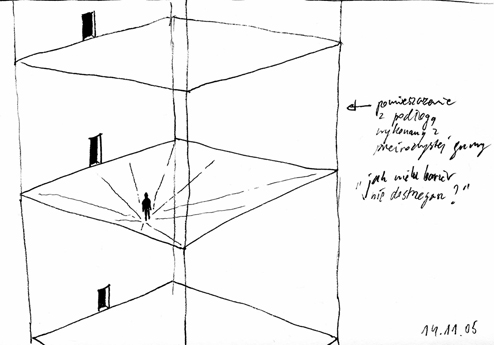 pomieszczenie
z podłogą
wykonaną z
przeźroczystej gumy
"jak wiele barier
nie dostrzegasz?"
14.11.05